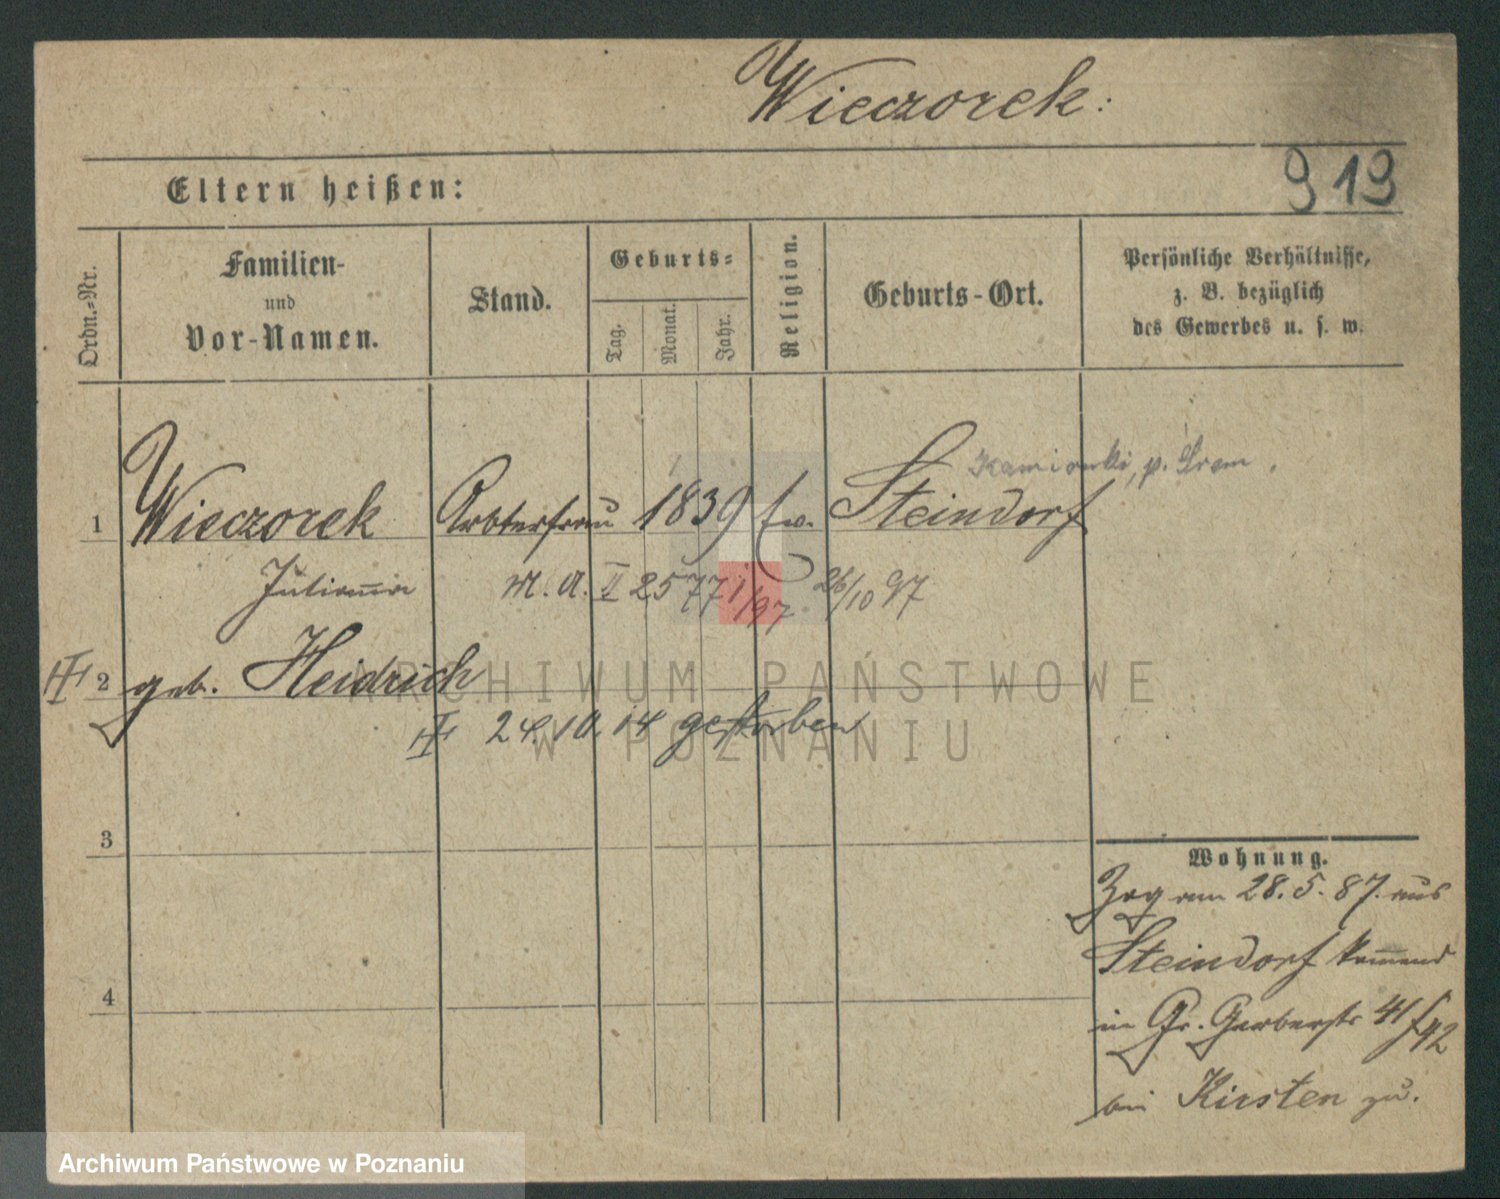 Wieczorek:
919
Eltern heißen:
Ordn.-Nr.
Familien-
und
Vor-Namen.
Stand.
Geburts-
Tag.
Monat.
Jahr.
Religion.
Geburts-Ort.
Persönliche Verhältnisse,
z. B. bezüglich
des Gewerbes u. s. w.
Kamionki, p. Srem.
1 Wieczorek Arbterfrau 1839 ew. Steindorf
Julianna M. A. II 2577 1/97 26/10 97
2 geb. Heidrich
24.10.14 gestorben
3
Wohnung.
Zog am 28.5.87. aus
Steindorf kommend
4
in Gr. Gerberstr 41/42
bei Kirsten zu.
ARCHIWUM PAŃSTWOWE
W POZNANIU
Archiwum Państwowe w Poznaniu